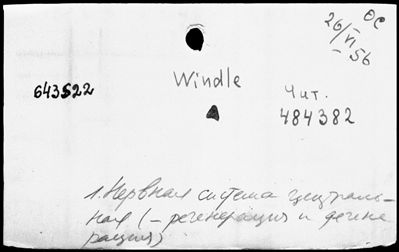 ОС
26/VI-56
Windle
643522
Чит.
484382
1. Нервная система централь-
ная (- регенерация и дегене
рация)